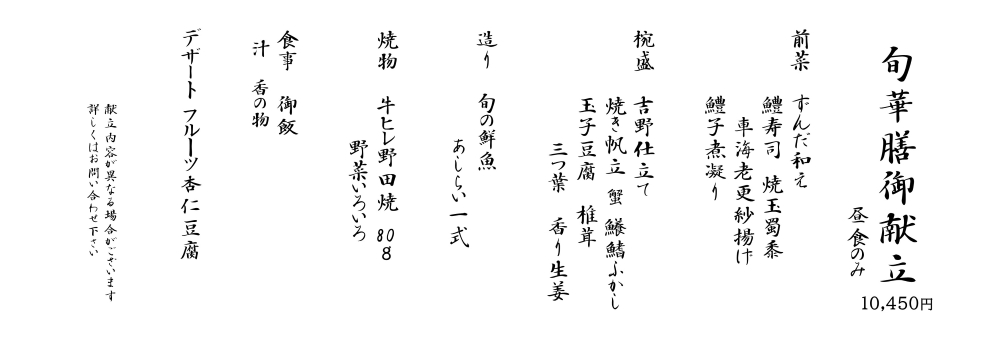 旬華膳御献立
昼食のみ
10,450円
前菜　ずんだ和え
鱧寿司　焼玉蜀黍
車海老更紗揚げ
鱧子煮凝り
椀盛　吉野仕立て
焼き帆立　蟹　鱶鰭ふかし
玉子豆腐　椎茸
三つ葉　香り生姜
造り　旬の鮮魚
あしらい一式
焼物　牛ヒレ野田焼　80g
野菜いろいろ
食事　御飯
汁　香の物
デザート　フルーツ杏仁豆腐
献立内容が異なる場合がございます
詳しくはお問い合わせ下さい